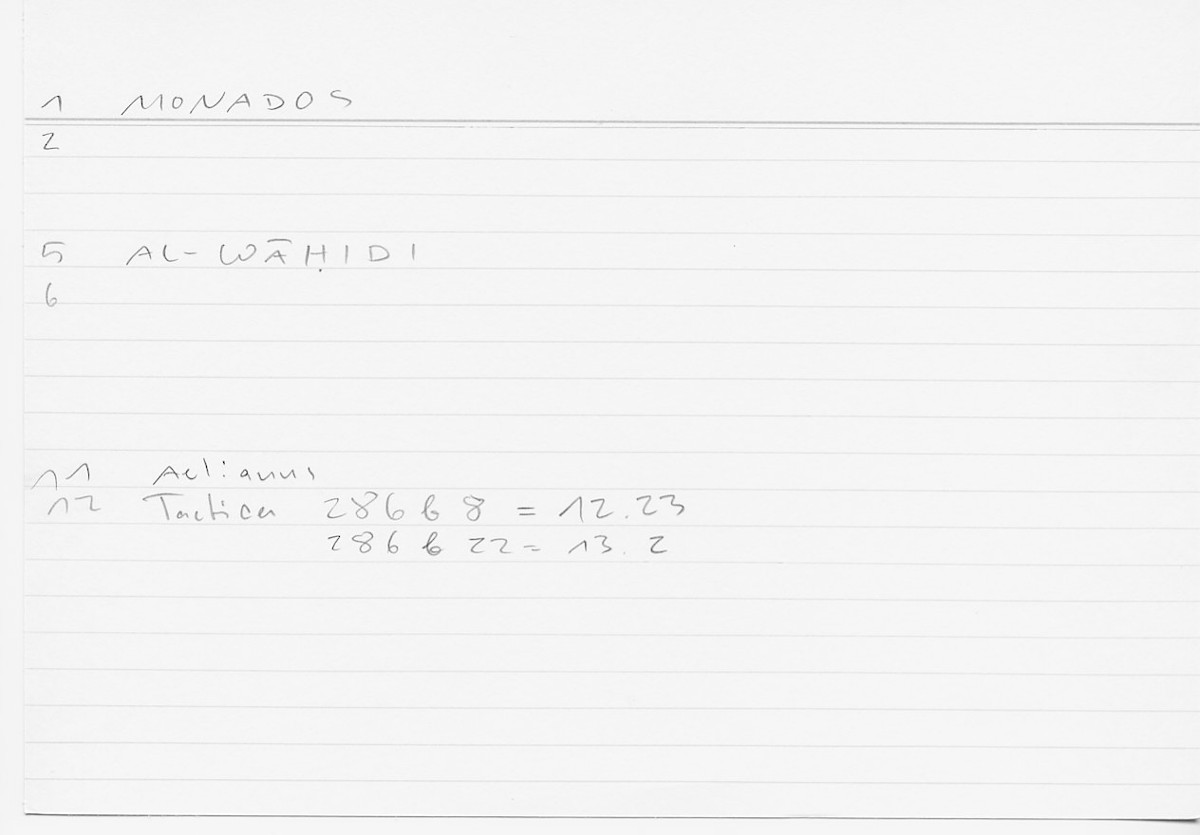 1 MONADOS
2
5 AL-WĀḤIDI
6
11 Aelianus
12 Tactica 286 b 8 = 12.23
286 b 22 = 13.2